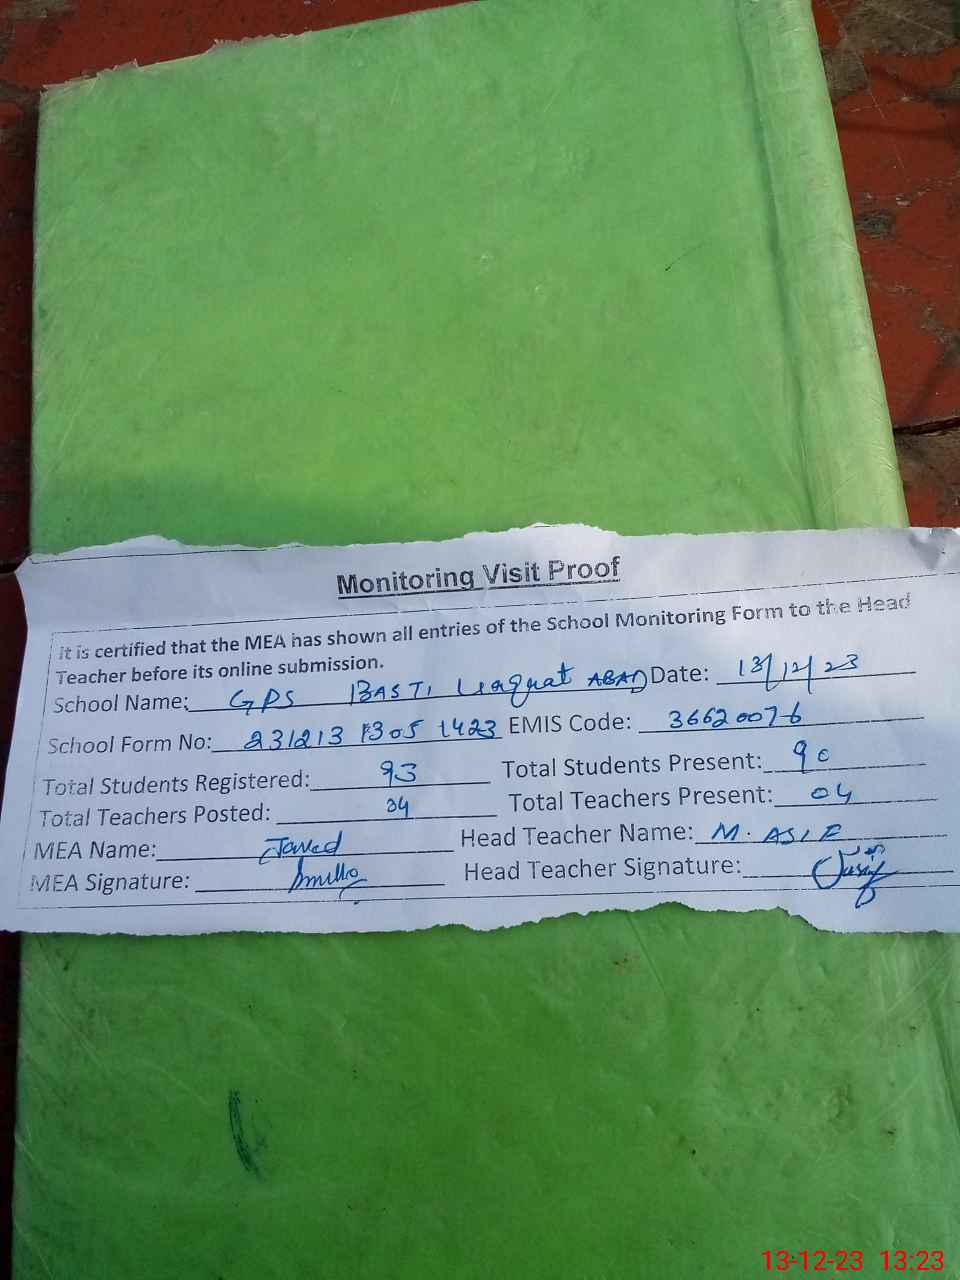 Monitoring Visit Proof
It is certified that the MEA has shown all entries of the School Monitoring Form to the Head
Teacher before its online submission.
School Name: GPS BASTI Liaquat ABAD Date: 13/12/23
School Form No: 231213 1305 1423 EMIS Code: 36620076
Total Students Registered: 93 Total Students Present: 90
Total Teachers Posted: 04 Total Teachers Present: 04
MEA Name: Javed Head Teacher Name: M. ASIF
MEA Signature: Head Teacher Signature:
13-12-23 13:23